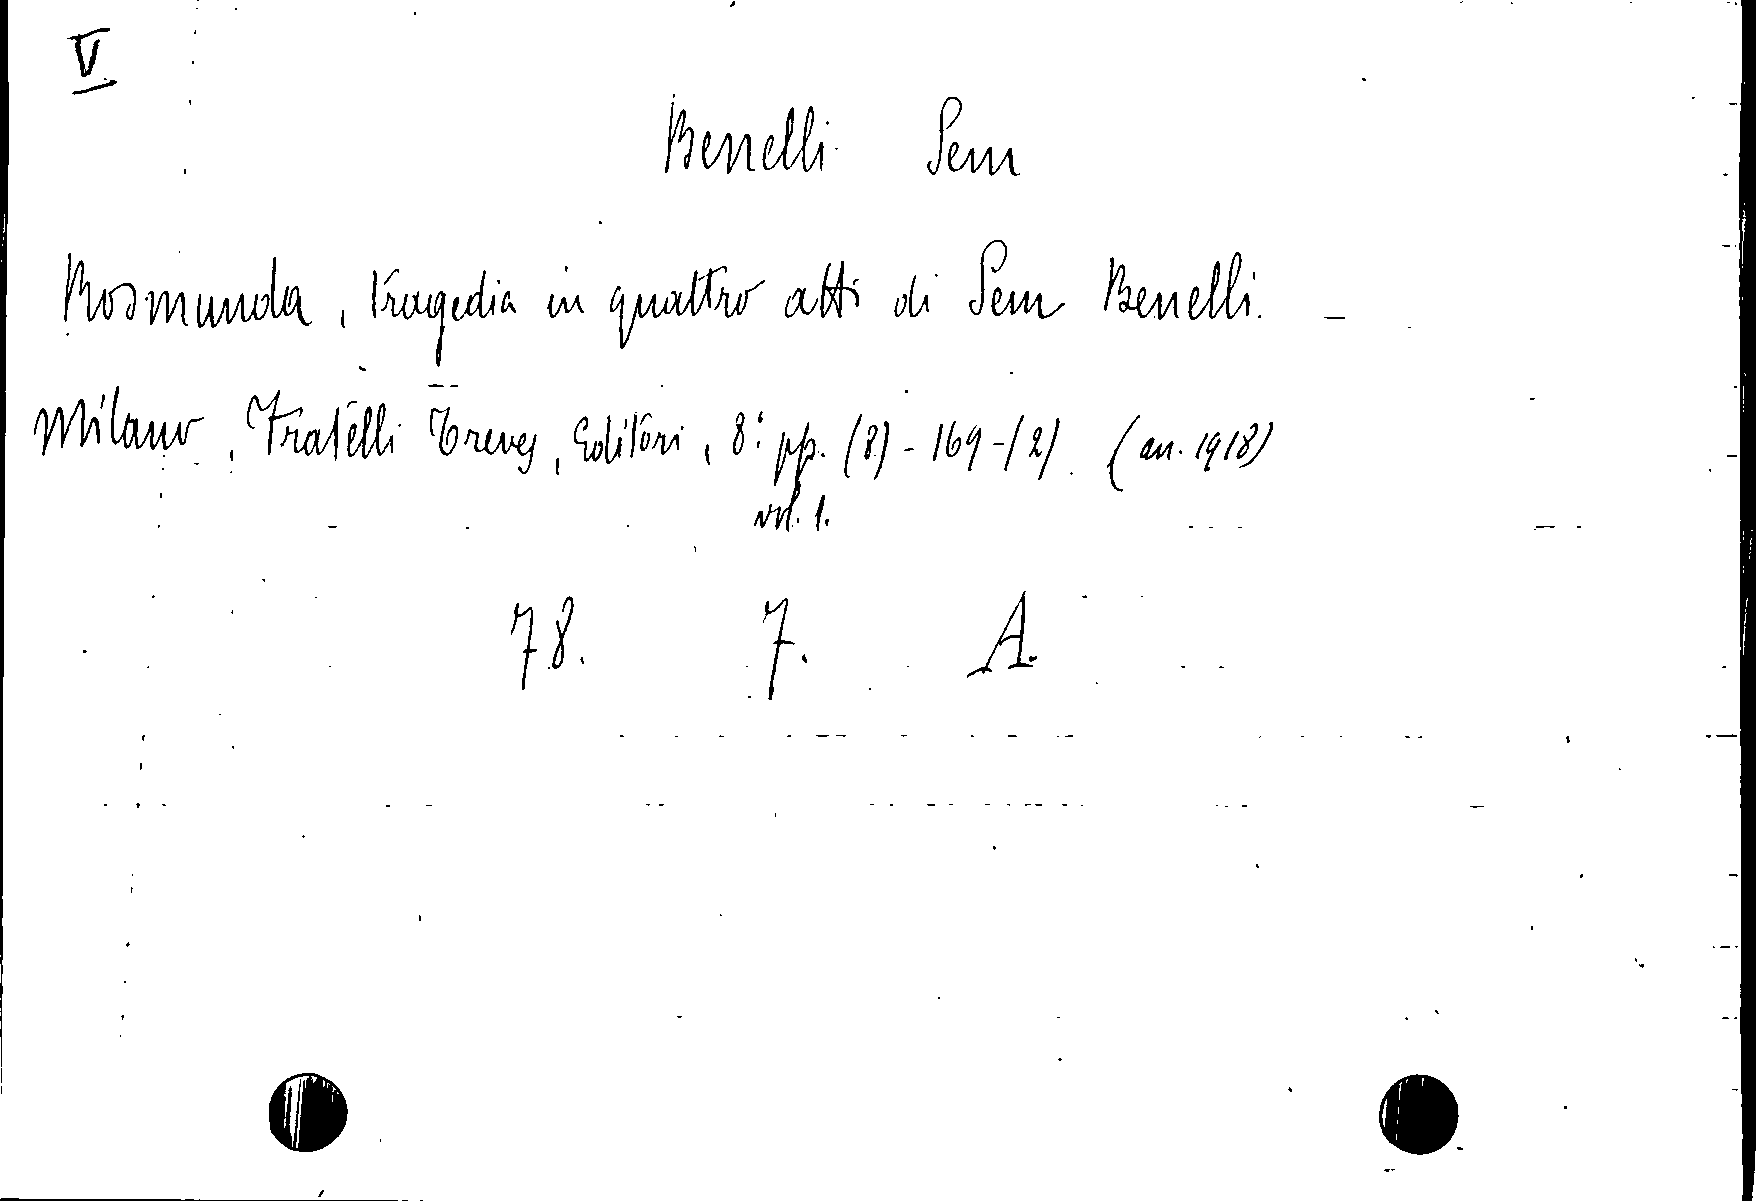 V
Benelli Sem
Rosmunda, tragedia in quattro atti di Sem Benelli. –
Milano, Fratelli Treves, Editori, 8.° pp. (8) - 169 - (2) (an. 1918)
vol. 1.
78. 7. A.